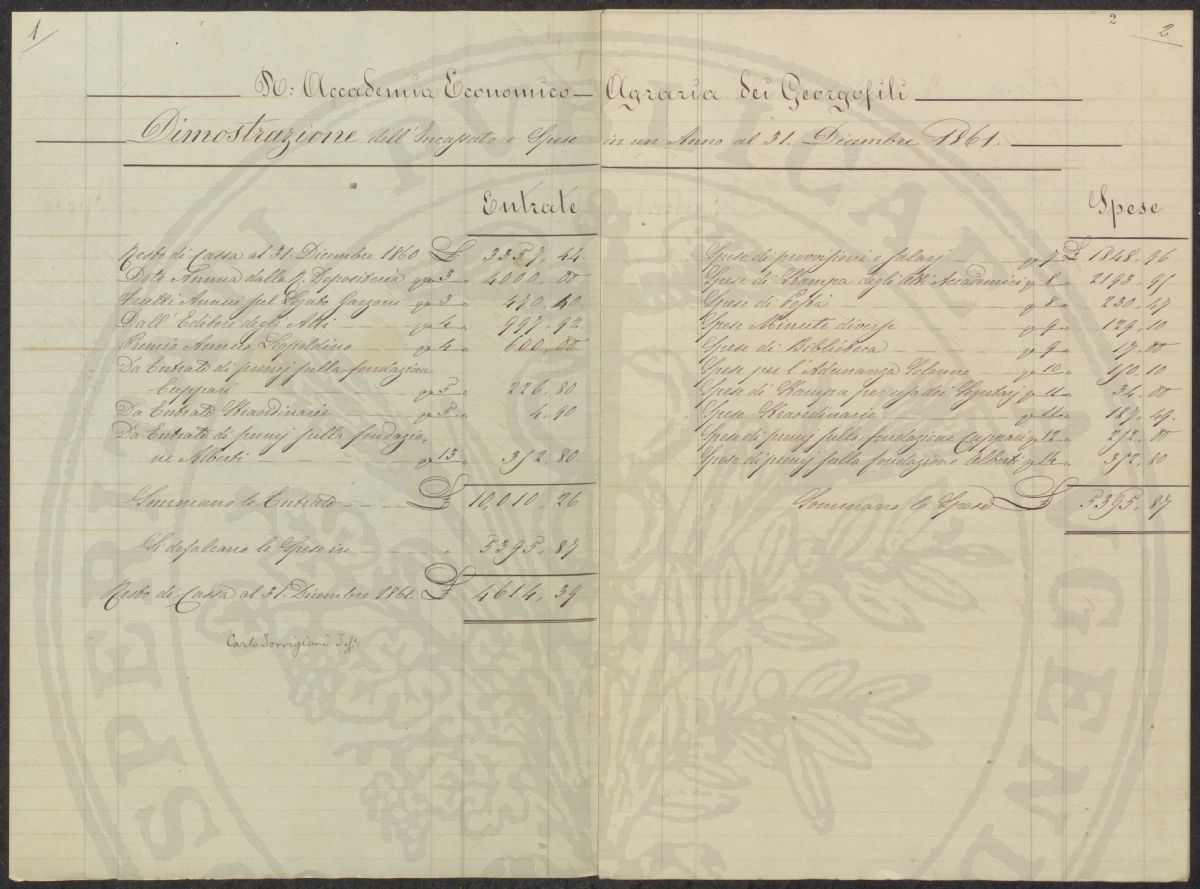 1
2
2
R: Accademia Economico – Agraria dei Georgofili
Dimostrazione dell'Incassato e Speso in un Anno al 31. Dicembre 1861.
Entrate
Resto di Cassa al 31. Dicembre 1860 £ 3357,44
Dote Annua dalla C. Depositeria ga 3 „ 4000,00
Frutti Annui sul Legato Garzoni ga 3 „ 470,40
Dall'Editore degli Atti ga 4 „ 997,92
Premio Annuo Leopoldino ga 4 „ 600,00
Da Entrate di premj sulla fondazione
Cuppari ga 5 „ 226,80
Da Entrate Straordinarie ga 5 „ 4,90
Da Entrate di premj sulla fondazio-
ne Alberti ga 13 „ 352,80
Sommano le Entrate £ 10,010,26
Si defalcano le Spese in „ 5395,87
Resto di Cassa al 31. Dicembre 1861. £ 4614,39
Carlo Torrigiani
Spese
Spese di provvisioni e salarj ga 7 £ 1848,96
Spese di Stampa degli Atti Accademici ga 8 „ 2193,95
Spese di Posta ga 8 „ 230,47
Spese Minute diverse ga 9 „ 129,10
Spese di Biblioteca ga 9 „ 17,00
Spese per l'Adunanza Solenne ga 10 „ 150,10
Spese di Stampa per uso dei Segretarj ga 11 „ 34,00
Spese Straordinarie ga 11 „ 187,49.
Spese di premj sulla fondazione Cuppari ga 12 „ 252,00
Spese di premj sulla fondazione Alberti ga 14 „ 352,80
Sommano le Spese £ 5395,87
SPERIT I PVBLICAE AVGEND